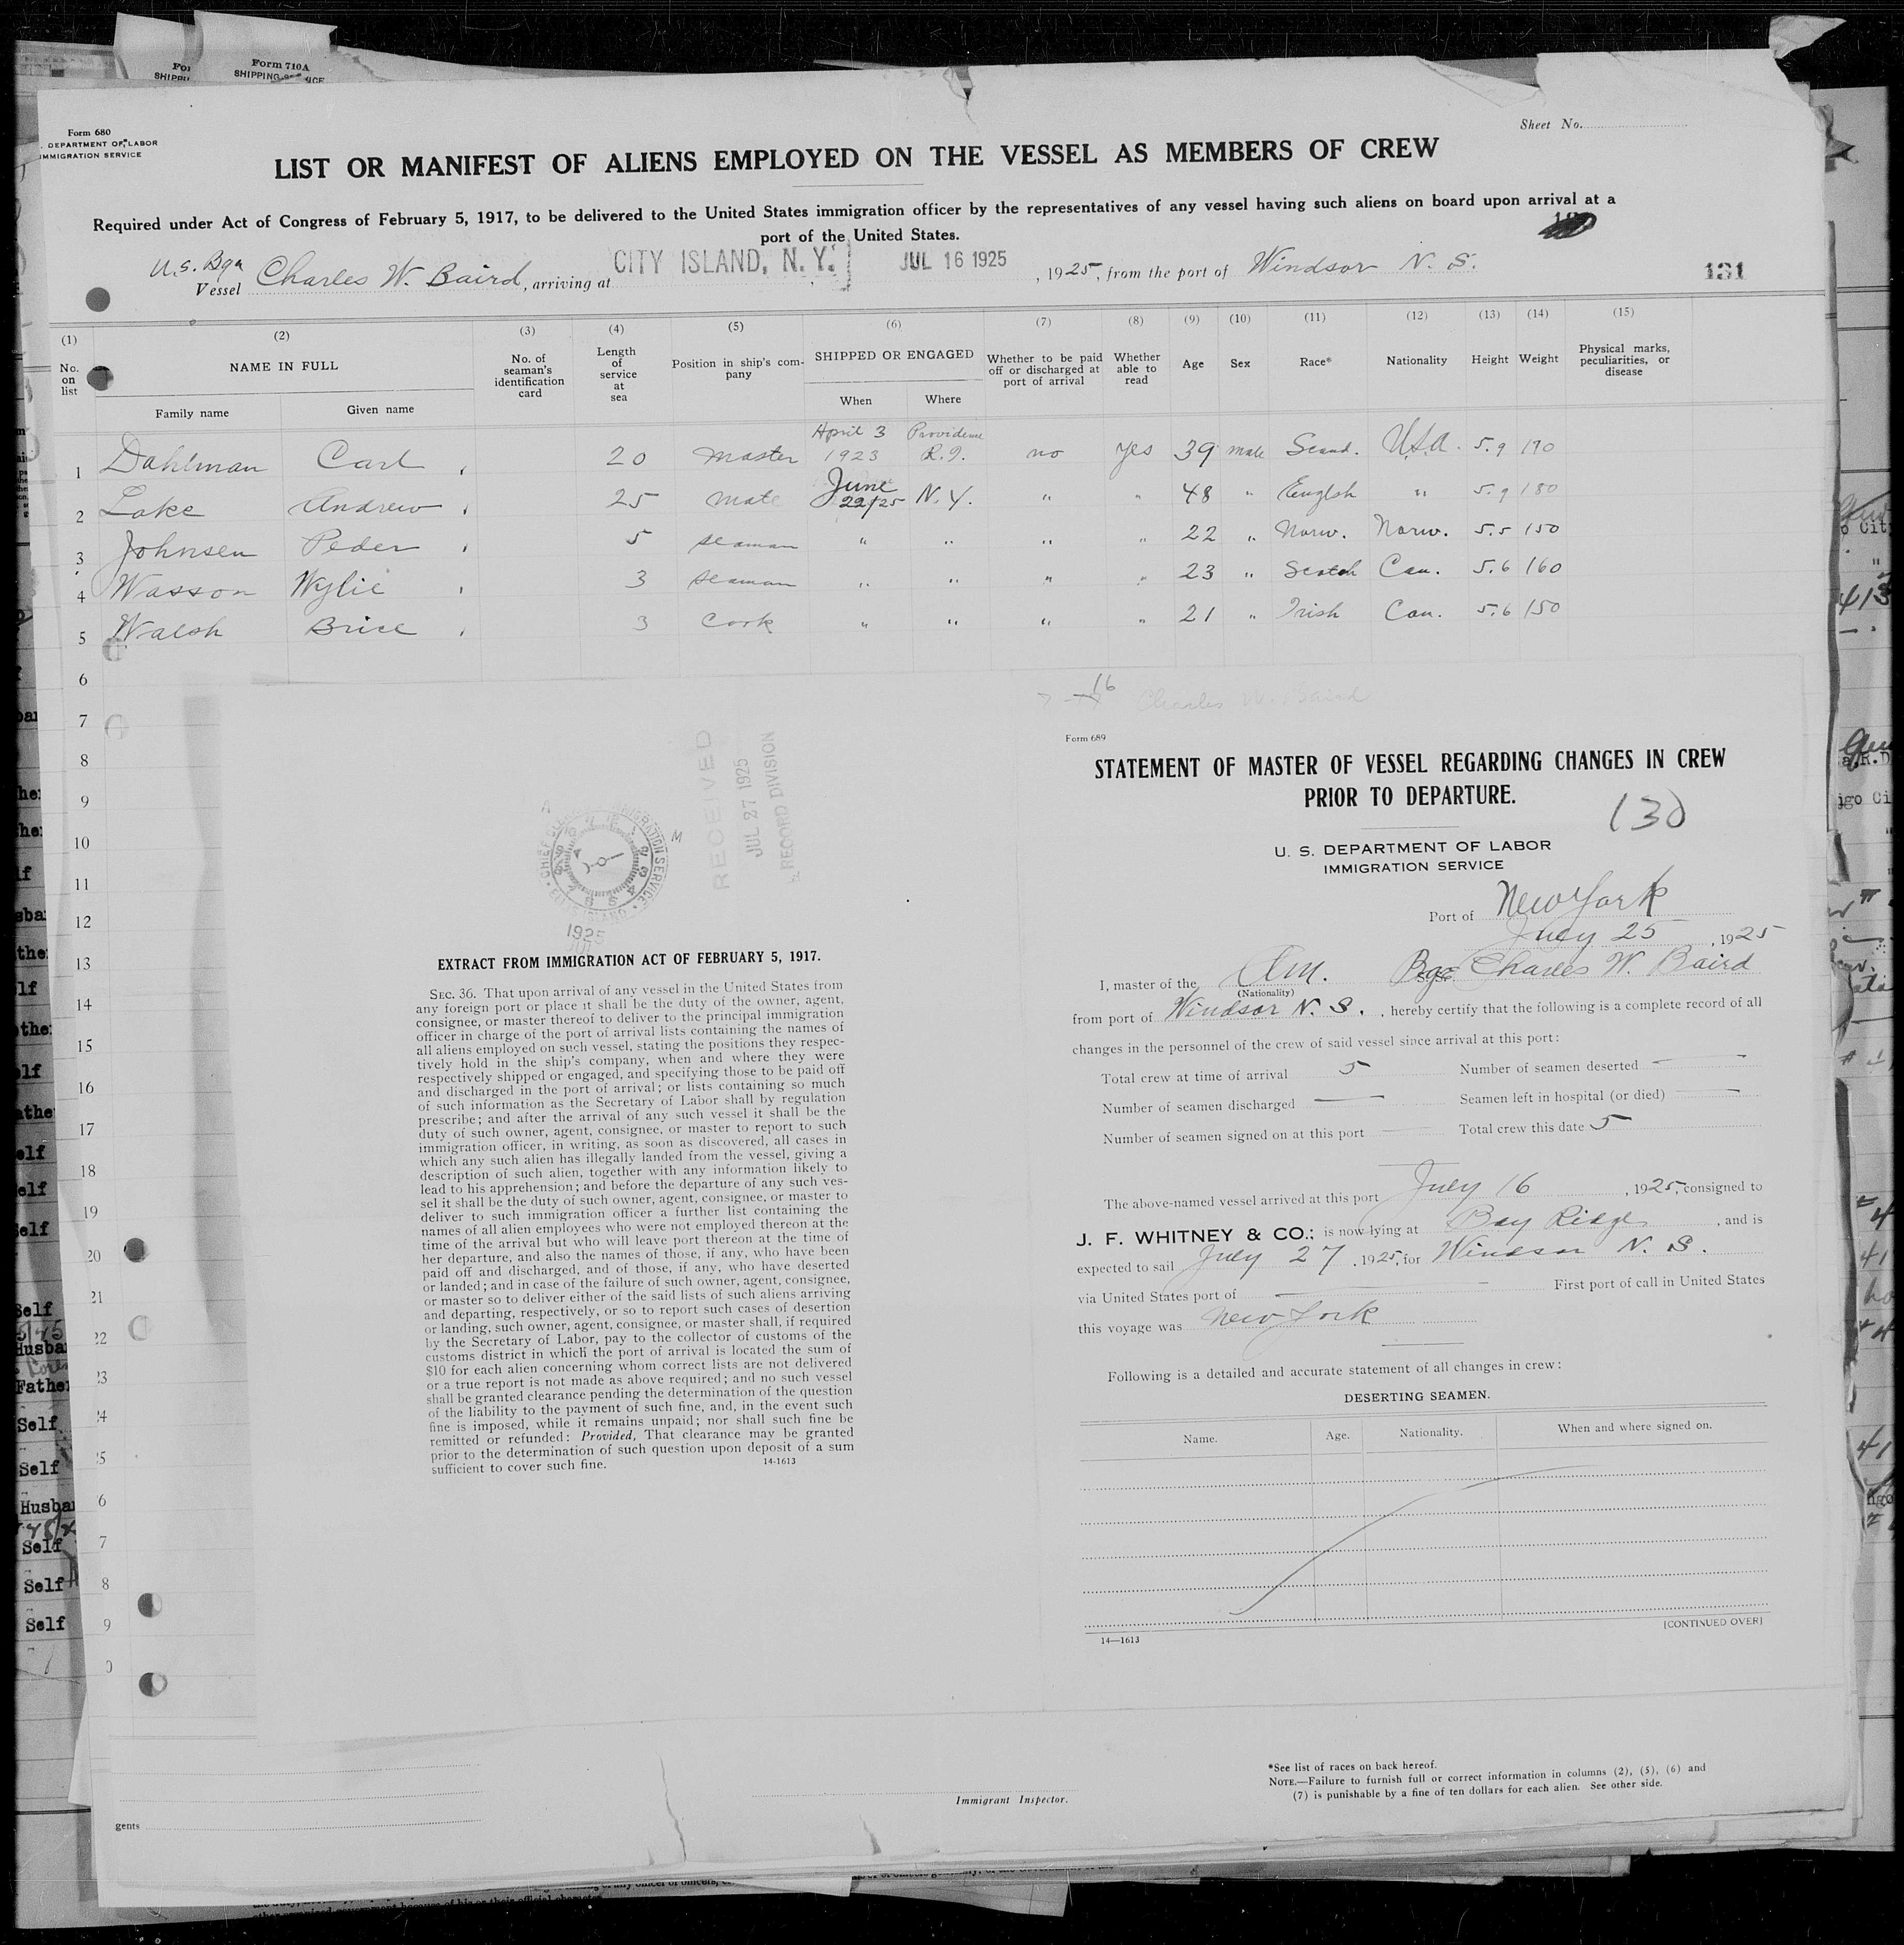 Form 710A
SHIPPING
Form 680
DEPARTMENT OF LABOR
IMMIGRATION SERVICE
Sheet No.
LIST OR MANIFEST OF ALIENS EMPLOYED ON THE VESSEL AS MEMBERS OF CREW
Required under Act of Congress of February 5, 1917, to be delivered to the United States immigration officer by the representatives of any vessel having such aliens on board upon arrival at a
port of the United States.
U.S. Bgn
Vessel Charles W. Baird, arriving at CITY ISLAND, N. Y. JUL 16 1925, 1925, from the port of Windsor N. S.
131
(1) (2) (3) (4) (5) (6) (7) (8) (9) (10) (11) (12) (13) (14) (15)
No. on list NAME IN FULL No. of seaman's identification card Length of service at sea Position in ship's company SHIPPED OR ENGAGED Whether to be paid off or discharged at port of arrival Whether able to read Age Sex Race* Nationality Height Weight Physical marks, peculiarities, or disease
Family name Given name When Where
1 Dahlman Carl 20 Master April 3 1923 Providence R.I. no yes 39 male Scand. U.S.A. 5.9 170
2 Lake Andrew 25 Mate June 22/25 N.Y. " " 48 " English " 5.9 180
3 Johnsen Peder 5 seaman " " " " 22 " Norw. Norw. 5.5 150
4 Wasson Wylie 3 seaman " " " " 23 " Scotch Can. 5.6 160
5 Walsh Brice 3 Cook " " " " 21 " Irish Can. 5.6 150
6
7
8
9
10
11
12
13
14
15
16
17
18
19
20
21
22
23
24
RECEIVED
JUL 27 1925
RECORD DIVISION
1925
EXTRACT FROM IMMIGRATION ACT OF FEBRUARY 5, 1917.
SEC. 36. That upon arrival of any vessel in the United States from
any foreign port or place it shall be the duty of the owner, agent,
consignee, or master thereof to deliver to the principal immigration
officer in charge of the port of arrival lists containing the names of
all aliens employed on such vessel, stating the positions they respec-
tively hold in the ship's company, when and where they were
respectively shipped or engaged, and specifying those to be paid off
and discharged in the port of arrival; or lists containing so much
of such information as the Secretary of Labor shall by regulation
prescribe; and after the arrival of any such vessel it shall be the
duty of such owner, agent, consignee, or master to report to such
immigration officer, in writing, as soon as discovered, all cases in
which any such alien has illegally landed from the vessel, giving a
description of such alien, together with any information likely to
lead to his apprehension; and before the departure of any such ves-
sel it shall be the duty of such owner, agent, consignee, or master to
deliver to such immigration officer a further list containing the
names of all alien employees who were not employed thereon at the
time of the arrival but who will leave port thereon at the time of
her departure, and also the names of those, if any, who have been
paid off and discharged, and of those, if any, who have deserted
or landed; and in case of the failure of such owner, agent, consignee,
or master so to deliver either of the said lists of such aliens arriving
and departing, respectively, or so to report such cases of desertion
or landing, such owner, agent, consignee, or master shall, if required
by the Secretary of Labor, pay to the collector of customs of the
customs district in which the port of arrival is located the sum of
$10 for each alien concerning whom correct lists are not delivered
or a true report is not made as above required; and no such vessel
shall be granted clearance pending the determination of the question
of the liability to the payment of such fine, and, in the event such
fine is imposed, while it remains unpaid; nor shall such fine be
remitted or refunded: Provided, That clearance may be granted
prior to the determination of such question upon deposit of a sum
sufficient to cover such fine.
14-1613
16 Charles W. Baird
Form 689
STATEMENT OF MASTER OF VESSEL REGARDING CHANGES IN CREW
PRIOR TO DEPARTURE.
130
U. S. DEPARTMENT OF LABOR
IMMIGRATION SERVICE
Port of New York
July 25, 1925
I, master of the Am. Bge Charles W. Baird
(Nationality)
from port of Windsor N. S., hereby certify that the following is a complete record of all
changes in the personnel of the crew of said vessel since arrival at this port:
Total crew at time of arrival 5 Number of seamen deserted —
Number of seamen discharged — Seamen left in hospital (or died) —
Number of seamen signed on at this port — Total crew this date 5
The above-named vessel arrived at this port July 16, 1925, consigned to
J. F. WHITNEY & CO.; is now lying at Bay Ridge, and is
expected to sail July 27, 1925, for Windsor N. S.
via United States port of — First port of call in United States
this voyage was New York
Following is a detailed and accurate statement of all changes in crew:
DESERTING SEAMEN.
Name. Age. Nationality. When and where signed on.
[CONTINUED OVER]
14—1613
*See list of races on back hereof.
NOTE.—Failure to furnish full or correct information in columns (2), (5), (6) and
(7) is punishable by a fine of ten dollars for each alien. See other side.
Immigrant Inspector.
gents